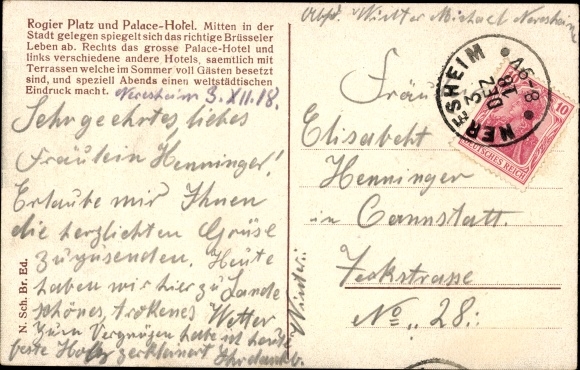 Absd. Winter Michael Neresheim
Rogier Platz und Palace-Hotel. Mitten in der
Stadt gelegen spiegelt sich das richtige Brüsseler
Leben ab. Rechts das grosse Palace-Hotel und
links verschiedene andere Hotels, saemtlich mit
Terrassen welche im Sommer voll Gästen besetzt
sind, und speziell Abends einen weltstädtischen
Eindruck macht.
Neresheim 3.XII.18,
Sehr geehrtes, liebes
Fräulein Henninger!
Erlaube mir Ihnen
die herzlichten Grüse
zuzusenden. Heute
haben wir hier zu Lande
schönes, trokenes Wetter
Zum Vergnügen habe ich heute
feste Holz zerkleinert Ihr dankb.
Winter:
N. Sch. Br. Ed.
NERESHEIM
3 DEZ 18
8-9V
10
DEUTSCHES REICH
Fräul
Elisabeht
Henninger
in Cannstatt.
Teckstrasse
No „ 28.: